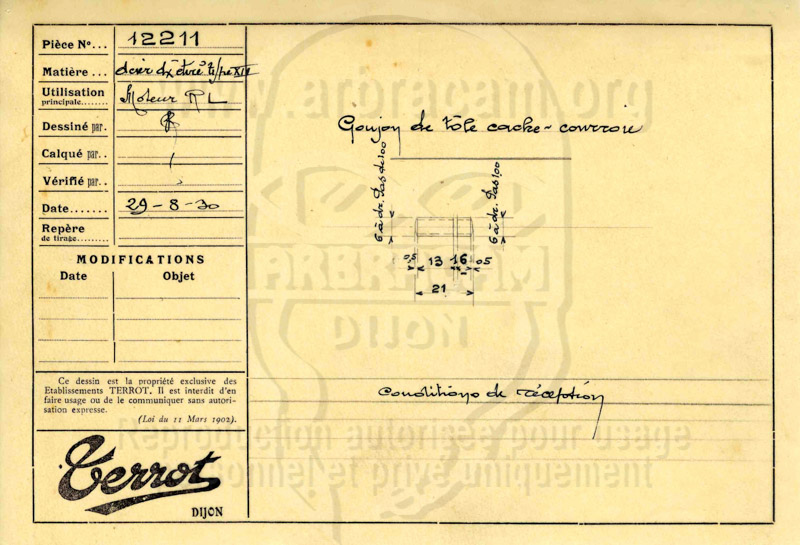 Pièce No... 12211
Matière... acier étiré type XIII
Utilisation
principale........ Moteur RL
Dessiné par.
Calqué par..
Vérifié par..
Date....... 29-8-30
Repère
de tirage........
MODIFICATIONS
Date Objet
Ce dessin est la propriété exclusive des
Etablissements TERROT. Il est interdit d'en
faire usage ou de le communiquer sans autori-
sation expresse.
(Loi du 11 Mars 1902).
Terrot
DIJON
Goujon de tôle cache-courroie
6 à dr. Pas de 100
6 à dr. Pas 100
0,5 13 1 6 05
21
Conditions de réception
www.arbracam.org
ARBRACAM
DIJON
Reproduction autorisée pour usage
personnel et privé uniquement